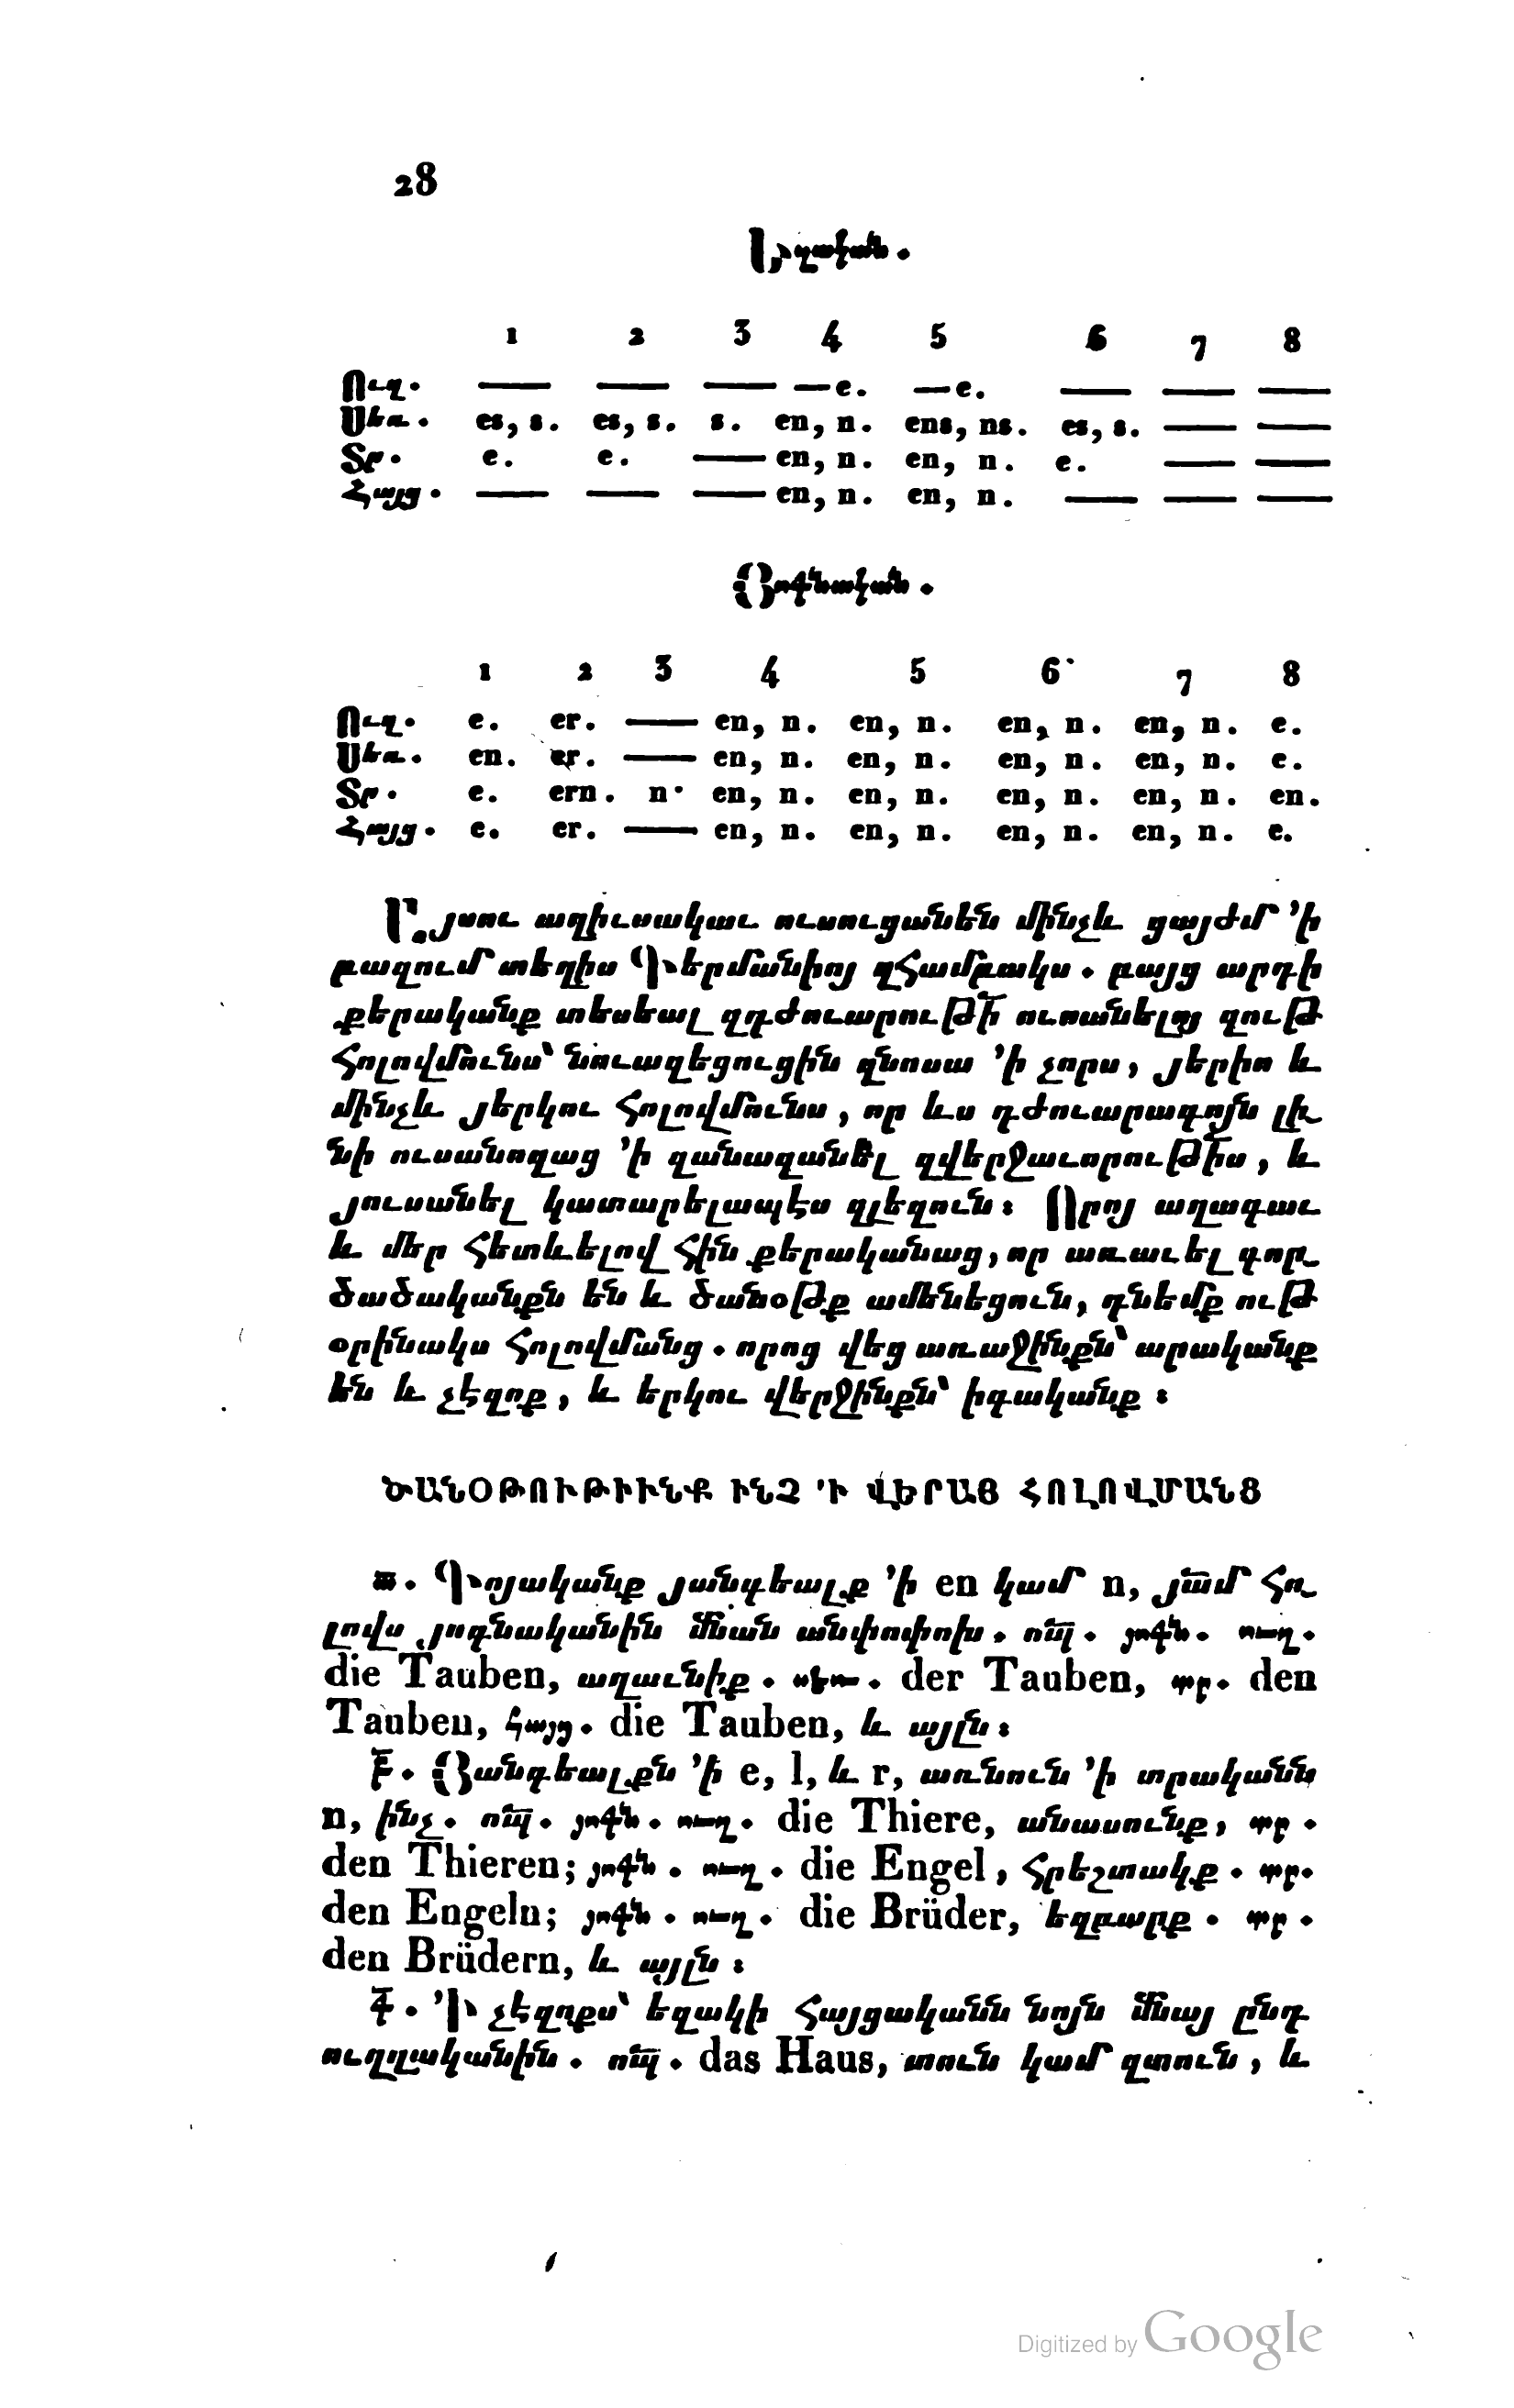 28
Եզական.
1 2 3 4 5 6 7 8
Ուղ. — — — —e. —e. — — —
Սեռ. es, s. es, s. s. en, n. ens, ns. es, s. — —
Տր. e. e. — en, n. en, n. e. — —
Հայց. — — — en, n. en, n. — — —
Յոգնական.
1 2 3 4 5 6 7 8
Ուղ. e. er. — en, n. en, n. en, n. en, n. e.
Սեռ. en. er. — en, n. en, n. en, n. en, n. e.
Տր. e. ern. n. en, n. en, n. en, n. en, n. en.
Հայց. e. er. — en, n. en, n. en, n. en, n. e.
Այսու աղիւսակաւ ուսուցանեն մինչև ցայժմ ’ի
բազում տեղիս Գերմանիոյ զՀամբակս. բայց արդի
քերականք տեսեալ զդժուարութի՜ ուսանելոյ զութ
հոլովմունս՝ նուազեցուցին զնոսա ’ի չորս, յերիս և
մինչև յերկու հոլովմունս, որ ևս դժուարագոյն լի֊
նի ուսանողաց ’ի զանազանել զվերջաւորութի՜ս, և
յուսանել կատարելապէս զլեզուն։ Որոյ աղագաւ
և մեր հետևելով հին քերականաց, որ առաւել գոր֊
ծածականքն են և ծանօթք ամենեցուն, դնեմք ութ
օրինակս հոլովմանց. որոց վեց առաջինքն՝ արականք
են և չէզոք, և երկու վերջինքն՝ իգականք։
ԾԱՆՕԹՈՒԹԻՒՆՔ ԻՆՉ ’Ի ՎԵՐԱՅ ՀՈԼՈՎՄԱՆՑ
ա. Գոյականք յանգեալք ’ի en կամ n, յա՜մ հո֊
լովս յոգնականին մ՜նան անփոփոխ. ո՜պ. յոգն. ուղ.
die Tauben, աղաւնիք. սեռ. der Tauben, տր. den
Tauben, հայց. die Tauben, և այլն։
բ. Յանգեալքն ’ի e, l, և r, առնուն ’ի տրականն
n, ինչ. ո՜պ. յոգն. ուղ. die Thiere, անասունք, տր.
den Thieren; յոգն. ուղ. die Engel, հրեշտակք. տր.
den Engeln; յոգն. ուղ. die Brüder, եղբարք. տր.
den Brüdern, և այլն։
գ. ’Ի չէզոքս՝ եզակի հայցականն նոյն մ՜նայ ընդ
ուղղականին. ո՜պ. das Haus, տուն կամ զտուն, և
Digitized by Google